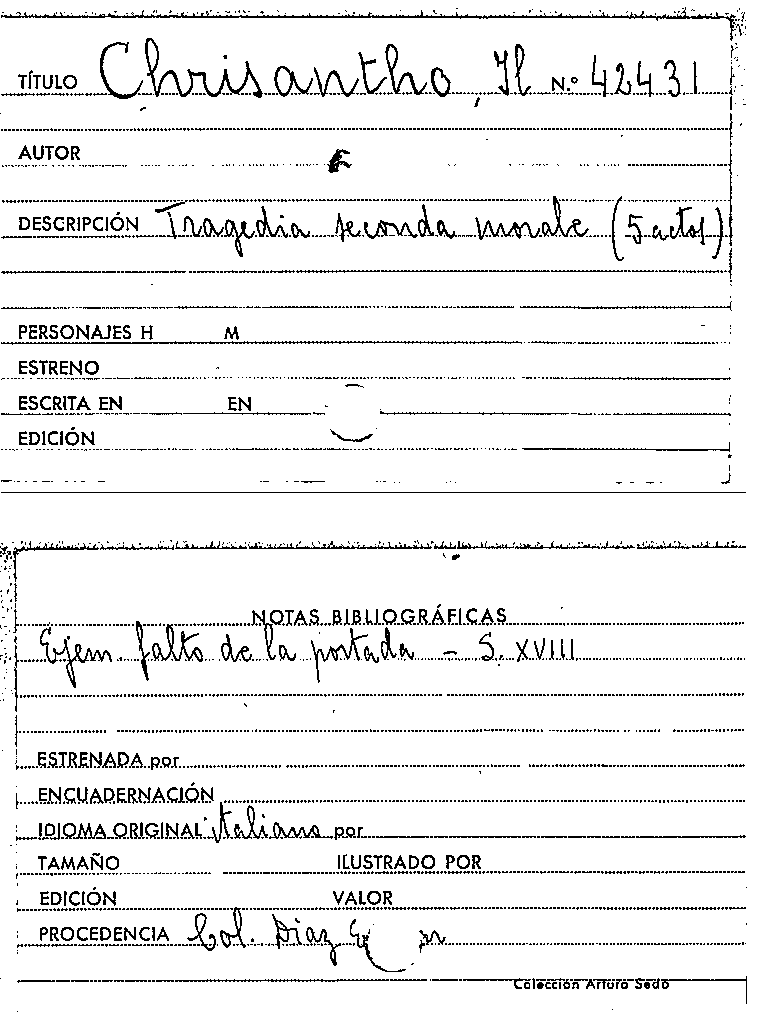 TÍTULO Chrisantho, Il N.º 42431
AUTOR
DESCRIPCIÓN Tragedia seconda morale (5 actos)
PERSONAJES H M
ESTRENO
ESCRITA EN EN
EDICIÓN
NOTAS BIBLIOGRÁFICAS
Ejem. falto de la portada - S. XVIII
ESTRENADA por
ENCUADERNACIÓN
IDIOMA ORIGINAL italiano por
TAMAÑO ILUSTRADO POR
EDICIÓN VALOR
PROCEDENCIA Col. Diaz
Colección Arturo Sedo